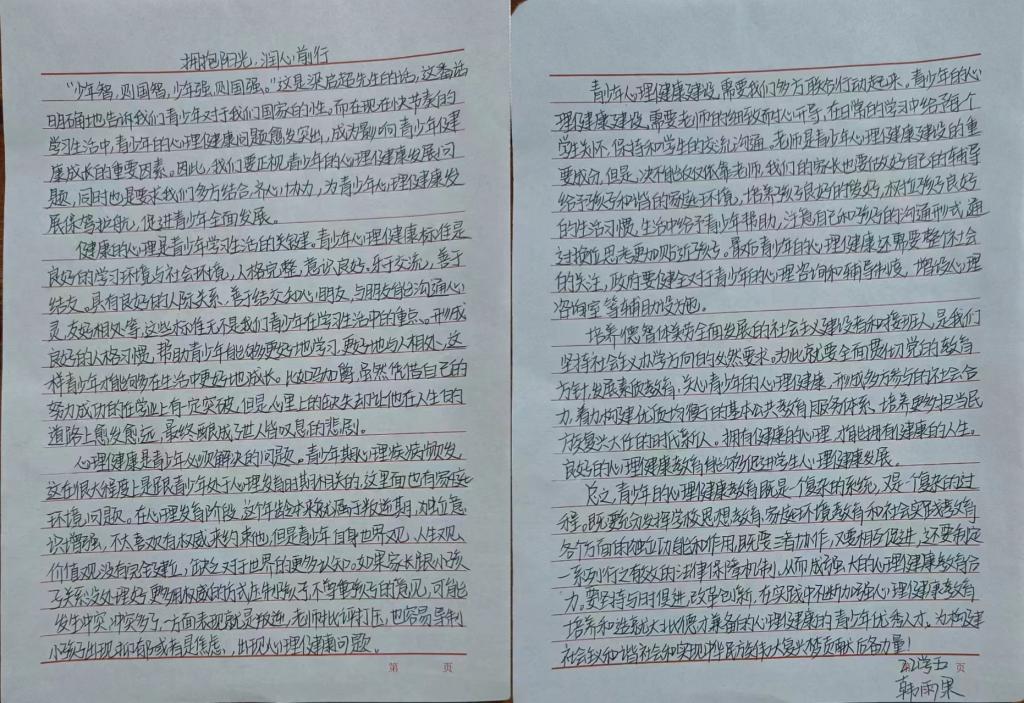 拥抱阳光,润心前行
“少年智,则国智,少年强,则国强。”这是梁启超先生的话,这番话
明确地告诉我们青少年对于我们国家的性。而在现在快节奏的
学习生活中,青少年的心理健康问题愈发突出,成为影响青少年健
康成长的重要因素。因此,我们要正视青少年的心理健康发展问
题,同时也是要求我们多方结合,齐心协力,为青少年心理健康发
展保驾护航,促进青少年全面发展。
健康的心理是青少年学习生活的关键。青少年心理健康标准是
良好的学习环境与社会环境,人格完整,意识良好,乐于交流,善于
结友。具有良好的人际关系,善于结交知心朋友,与朋友能沟通心
灵,友好相处等,这些标准无不是我们青少年在学习生活中的重点。形成
良好的人格习惯,帮助青少年能够更好地学习,更好地与人相处,这
样青少年才能够在生活中更好地成长。比如马加爵,虽然凭借自己的
努力成功的在学业上有一定突破,但是心理上的缺失却让他在人生的
道路上愈发愈远,最终酿成了世人叹息的悲剧。
心理健康是青少年必须解决的问题。青少年期心理疾病频发,
这在很大程度上是跟青少年处于心理发育时期相关的,这里面也有家庭
环境问题。在心理发育阶段,这个年龄本来就属于叛逆期,独立意
识增强,不太喜欢有权威来约束他,但是青少年自身世界观,人生观,
价值观没有完全建立,缺乏对于世界的更多认知。如果家长跟小孩
子关系没处理好,更多用权威的方式压制孩子,不尊重孩子的意见,可能
发生冲突,冲突多了,一方面表现就是叛逆,老师批评打压,也容易导制
小孩子出现抑郁或者是焦虑,出现心理健康问题。
第 页
青少年心理健康建设,需要我们多方联合行动起来。青少年的心
理健康建设,需要老师的细致耐心开导,在日常的学习中给予每个
学生关怀,保持和学生的交流沟通。老师是青少年心理健康建设的重
要成分,但是,决不能仅仅依靠老师,我们的家长也要做好自己的辅导
给予孩子和谐的家庭环境,培养孩子良好的爱好,树立孩子良好
的生活习惯,生活中给予青少年帮助,注意自己和孩子的沟通形式,通
过换位思考更加贴近孩子。最后青少年的心理健康还需要整个社会
的关注,政府要健全对于青少年的心理咨询和辅导制度,增设心理
咨询室等辅助设施。
培养德智体美劳全面发展的社会主义建设者和接班人,是我们
坚持社会主义办学方向的必然要求。为此就要全面贯彻党的教育
方针,发展素质教育,关心青少年的心理健康,形成多方参与的社会合
力,着力构建优质均衡的基本公共教育服务体系,培养更多担当民
族复兴大任的时代新人。拥有健康的心理,才能拥有健康的人生。
良好的心理健康教育能够促进学生心理健康发展。
总之,青少年的心理健康教育既是个复杂的系统,又是个复杂的过
程。既要充分发挥学校思想教育,家庭环境教育和社会实践教育
各个方面的独立功能和作用,既要三者协作,又要相互促进,还要制定
一系列行之有效的法律保障机制,从而成强大的心理健康教育合
力。要坚持与时俱进,改革创新,在实践中不断加强心理健康教育
培养和造就大批德才兼备的心理健康的青少年优秀人才。为构建
社会主义和谐社会和实现中华民族伟大复兴梦贡献后备力量!
页
韩雨果